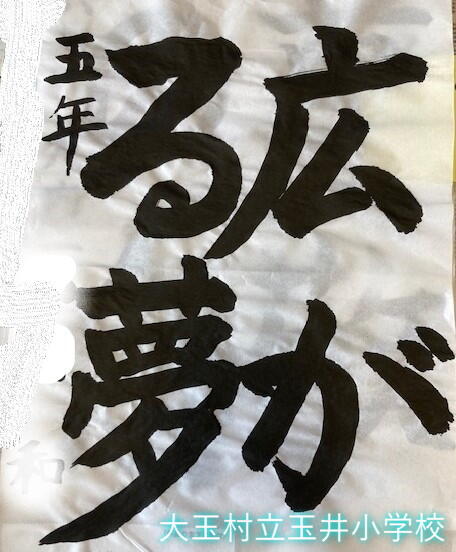 広が
る夢
五年
和
大玉村立玉井小学校